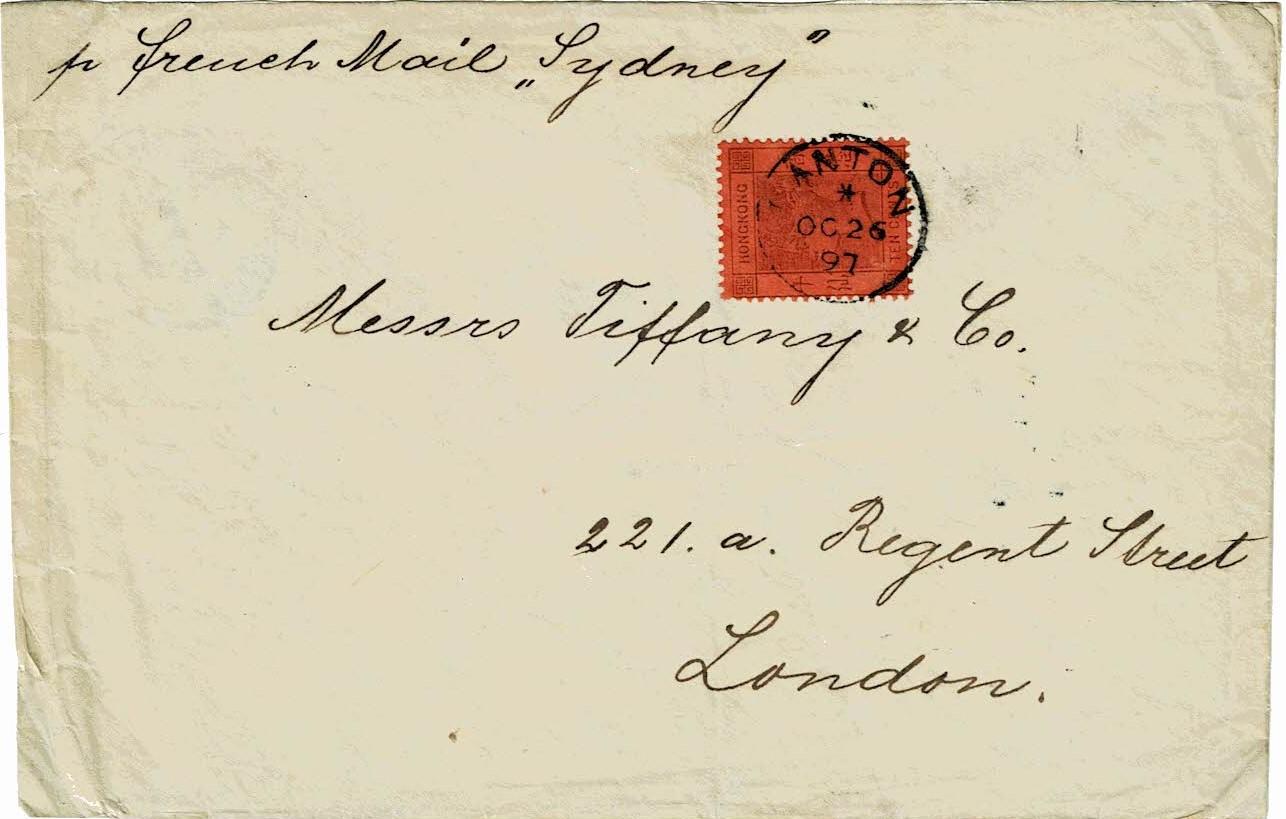 p French Mail „Sydney”
HONGKONG
TEN CENTS
ANTON
*
OC 26
97
Messrs Tiffany & Co.
221. a. Regent Street
London.